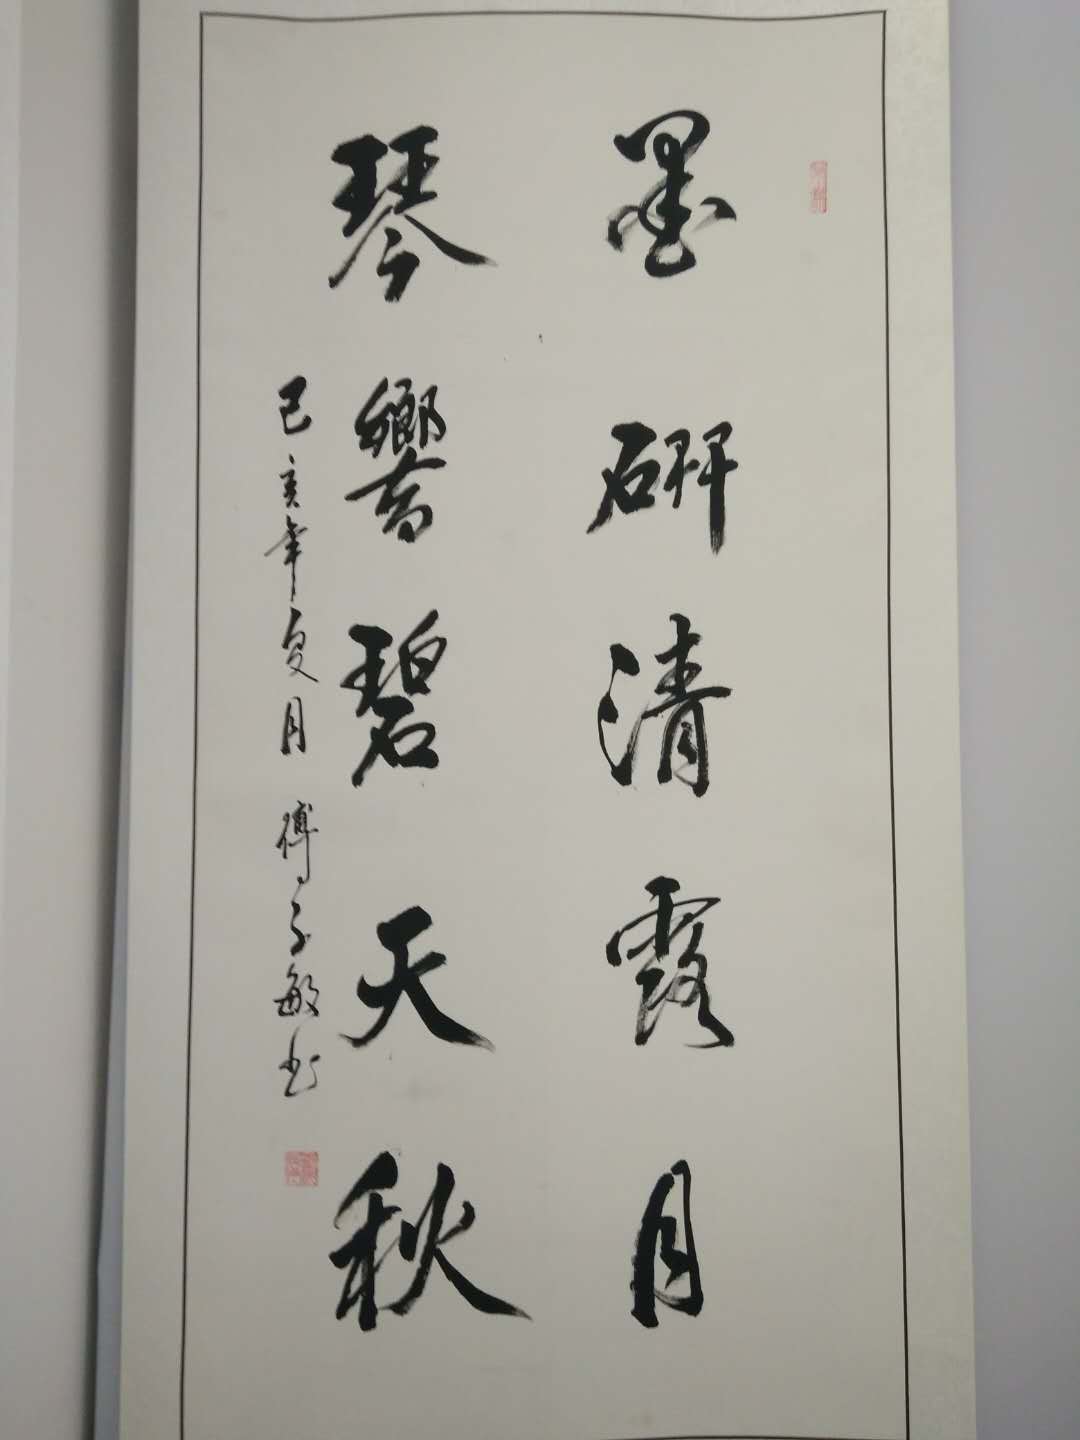 墨研清露月
琴響碧天秋
己亥年夏月 傅子敏书